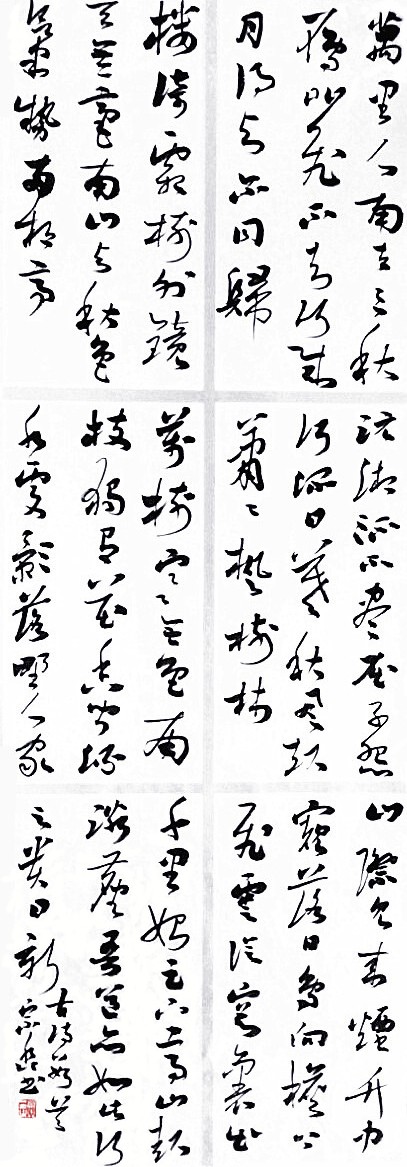 萬里人南去三秋
雁北飛不知何歲
月得与爾同歸
樓倚霜樹外鏡
天無一毫南山与秋色
氣勢兩相高
沅湘流不盡屈子怨
何深日暮秋風起
蕭々楓樹林
萬樹寒無色南
枝獨有花香聞流
水處影落野人家
山際見來煙竹中
窺落日鳥向檐上
飛雲從窗裏出
千里始足下高山起
微塵吾道亦如此行
之貴日新
古詩
書